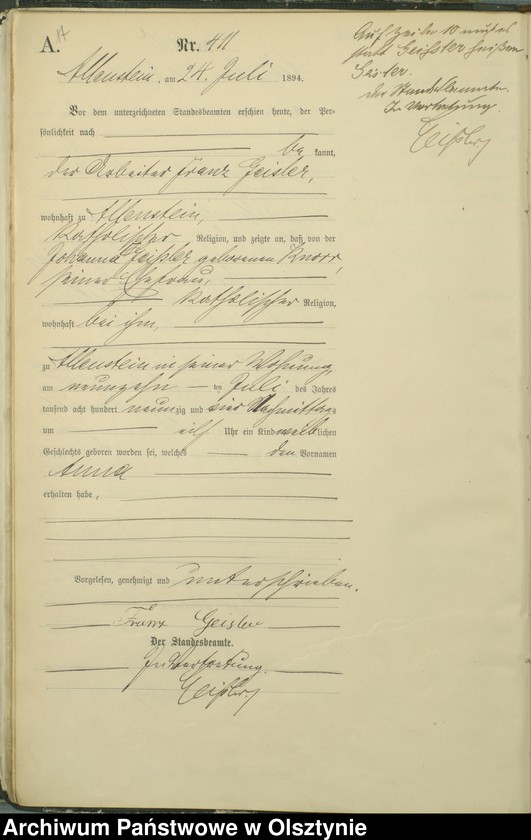 A.
Nr. 411
Auf Zeile 10 muß es
statt Geißler heißen
Geisler.
der Standesbeamte.
In Vertretung.
Allenstein, am 24. Juli 1894.
Vor dem unterzeichneten Standesbeamten erschien heute, der Per-
sönlichkeit nach
be kannt,
der Arbeiter Franz Geisler,
wohnhaft zu Allenstein,
katholischer Religion, und zeigte an, daß von der
Johanna Geißler geborenen Knorr,
seiner Ehefrau,
katholischer Religion,
wohnhaft bei ihm,
zu Allenstein in seiner Wohnung,
am neunzehn ten Juli des Jahres
tausend acht hundert neunzig und vier Nachmittags
um elf Uhr ein Kind weiblichen
Geschlechts geboren worden sei, welches den Vornamen
Anna
erhalten habe,
Vorgelesen, genehmigt und unterschrieben.
Franz Geisler
Der Standesbeamte.
In Vertretung.
Archiwum Państwowe w Olsztynie